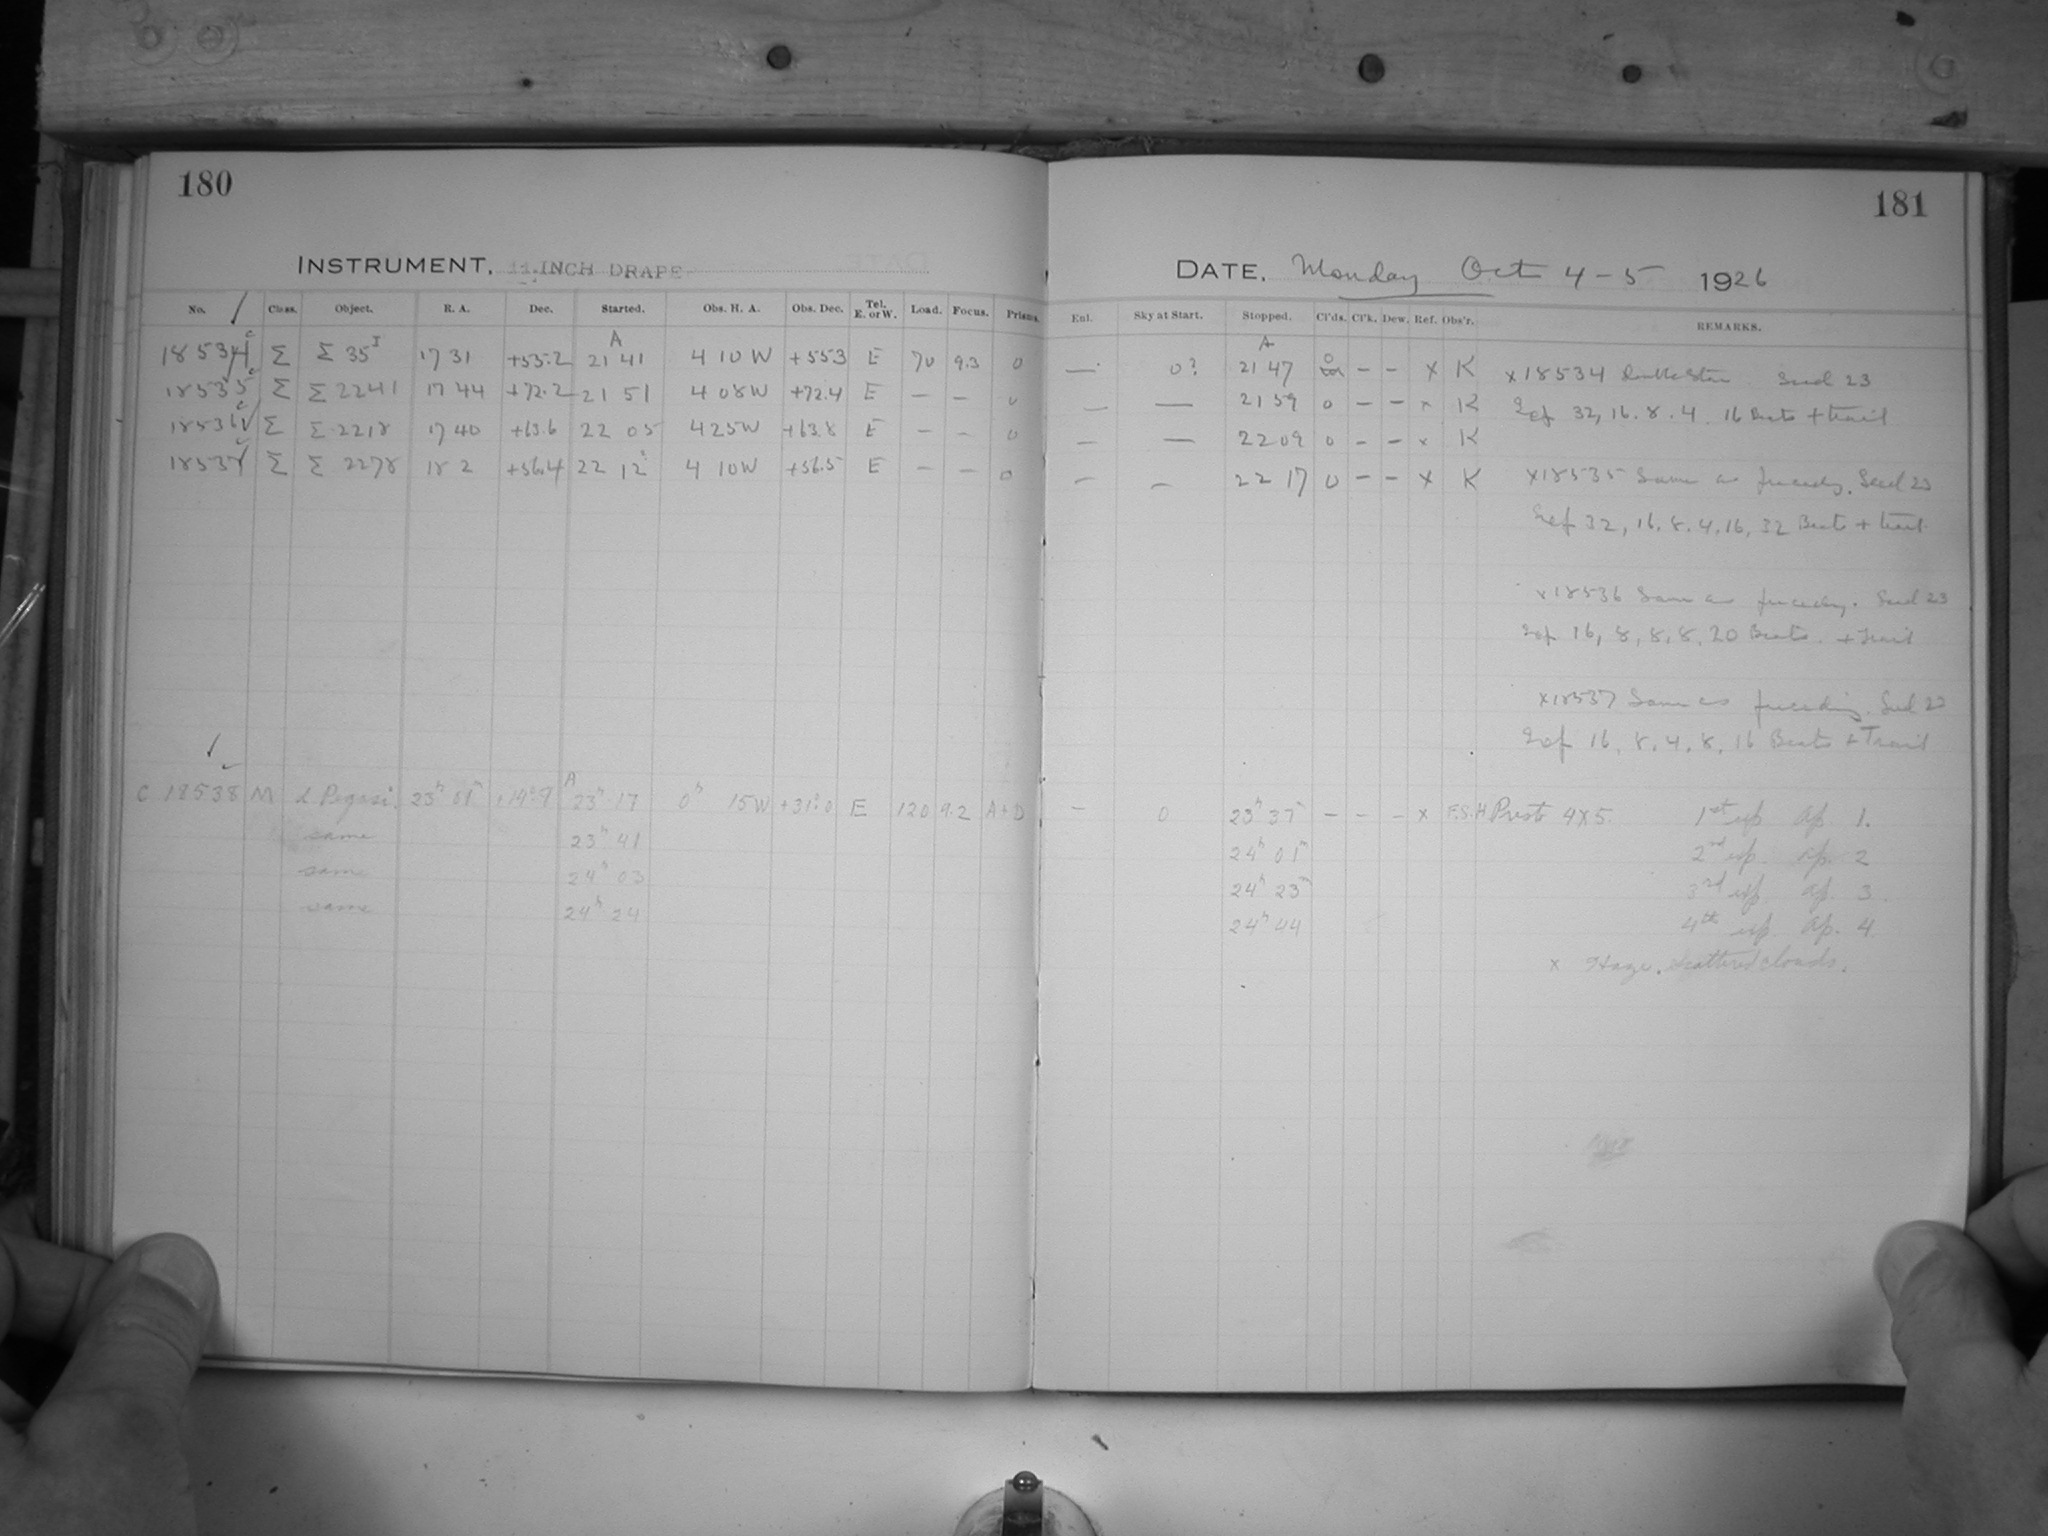 180
INSTRUMENT. 11-INCH DRAPE
No. Class. Object. R. A. Dec. Started. Obs. H. A. Obs. Dec. Tel. E. or W. Load. Focus. Prisms.
A
18534 c Σ Σ 35 I 17 31 +55.2 21 41 4 10 W +55.3 E 70 9.3 0
18535 c Σ Σ 2241 17 44 +72.2 21 51 4 08 W +72.4 E — — 0
18536 c Σ Σ 2218 17 40 +63.6 22 05 4 25 W +63.8 E — — 0
18537 Σ Σ 2278 18 2 +56.4 22 12 4 10 W +56.5 E — — 0
A
C 18538 M α Pegasi. 23h 01m 23h 17 0h 15 W +31.0 E 120 9.2 A+D
same 23h 41
same 24h 03
same 24h 24
181
DATE. Monday Oct 4 - 5 1926
Enl. Sky at Start. Stopped. Cl'ds. Cl'k. Dew. Ref. Obs'r. REMARKS.
A
— 0? 21 47 0 — — x K x18534 Double Star Seed 23
— — 21 59 0 — — x K Exp 32, 16. 8. 4. 16 Beats + trail
— — 22 09 0 — — x K
— — 22 17 0 — — x K x18535 Same as preceding. Seed 23
Exp 32, 16. 8. 4. 16, 32 Beats + trail
x18536 Same as preceding. Seed 23
Exp 16, 8, 8, 8, 20 Beats. + Trail
x18537 Same as preceding. Seed 23
Exp 16, 8. 4. 8. 16 Beats + Trail
— 0 23h 37m — — — x F.S.H 4X5. 1st exp ap 1.
24h 01m 2nd exp. ap. 2
24h 23m 3rd exp. ap. 3.
24h 44 4th exp. ap. 4
x Haze. Scattered clouds.